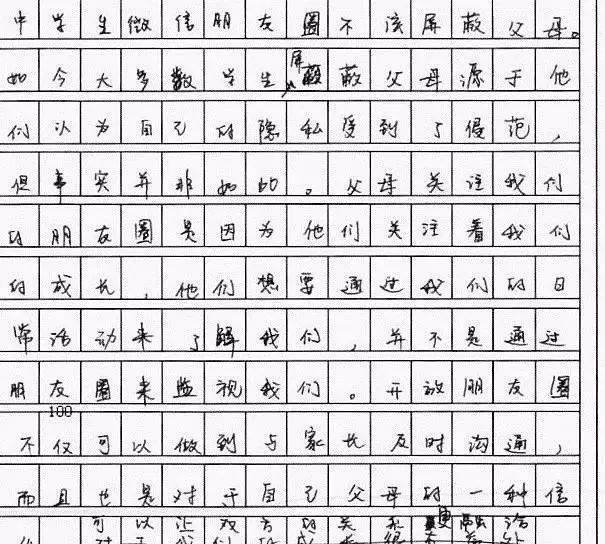 中学生微信朋友圈不该屏蔽父母。
如今大多数学生屏蔽父母源于他
们认为自己的隐私受到了侵范，
但事实并非如此。父母关注我们
的朋友圈是因为他们关注着我们
的成长，他们想要通过我们的日
常活动来了解我们，并不是通过
朋友圈来监视我们。开放朋友圈
100
不仅可以做到与家长及时沟通，
而且也是对于自己父母的一种信
可以让双方的关系